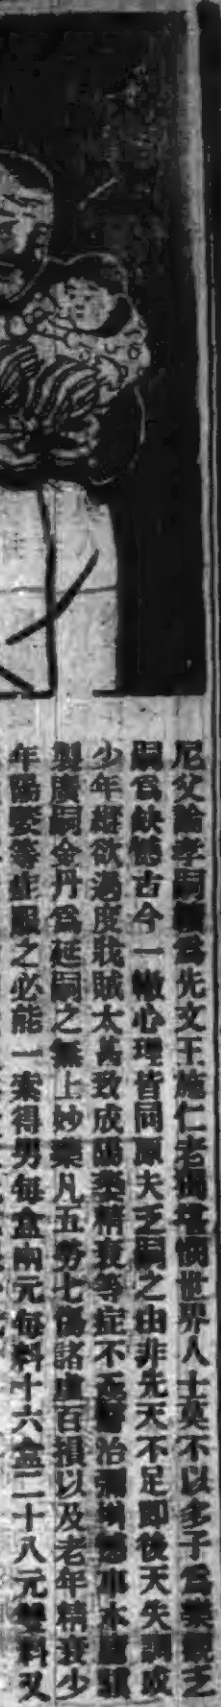 尼父論孝嗣續為先文王施仁老傷堪憫世界人士莫不以多子為樂觀乏
嗣為缺憾古今一轍心理皆同原夫乏嗣之由非先天不足即後天失調或
少年縱欲過度戕賊太甚致成陽萎精衰等症不亟醫治憾事本
製廣嗣金丹為延嗣之無上妙藥凡五勞七傷諸虛百損以及老年精衰少
年陽萎等症服之必能一索得男每盒兩元每料十六盒二十八元雙料又